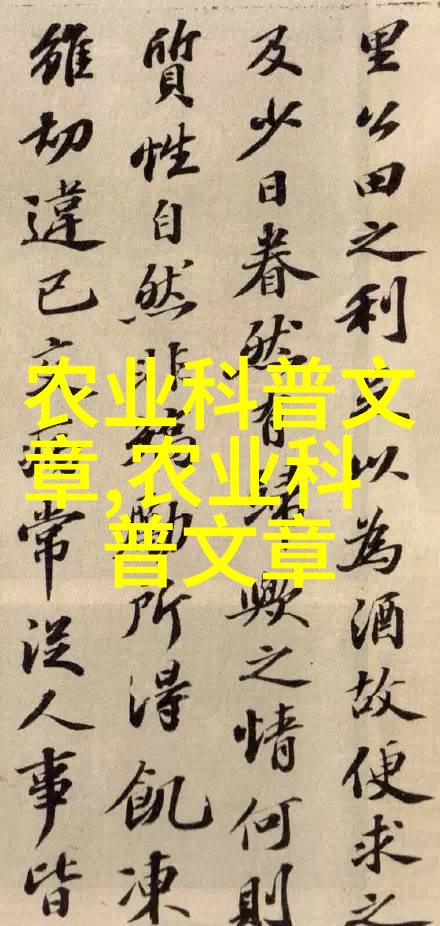 农业科普文
章,农业科
普文章
里公田之利足以為酒故便求之
及少日眷然有歸歟之情何則
質性自然非矯勵所得飢凍
雖切違已交病常從人事皆